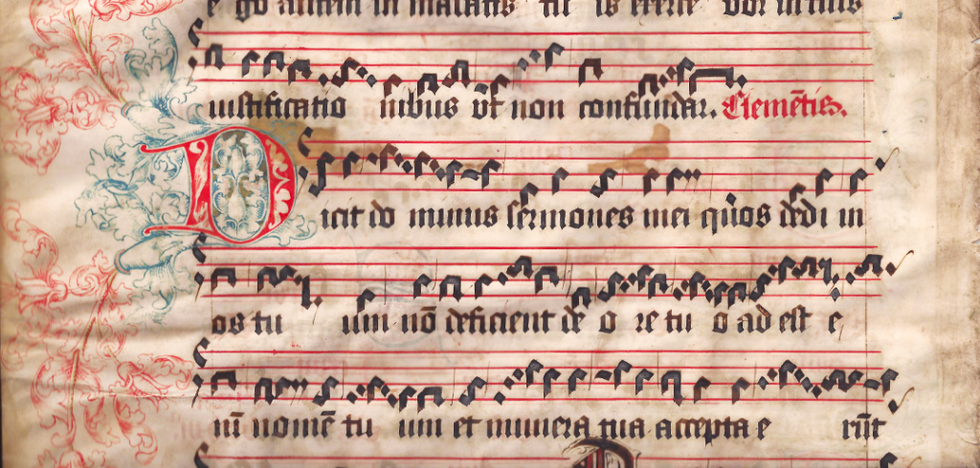 e go autem in mandatis tu is exerce bor in tuis
iustificatio nibus ut non confundar. Clemētis.
Dicit do minus sermones mei quos dedi in
os tu um nō deficient de o re tu o ad est e
ni nomē tu um et munera tua accepta e rūt